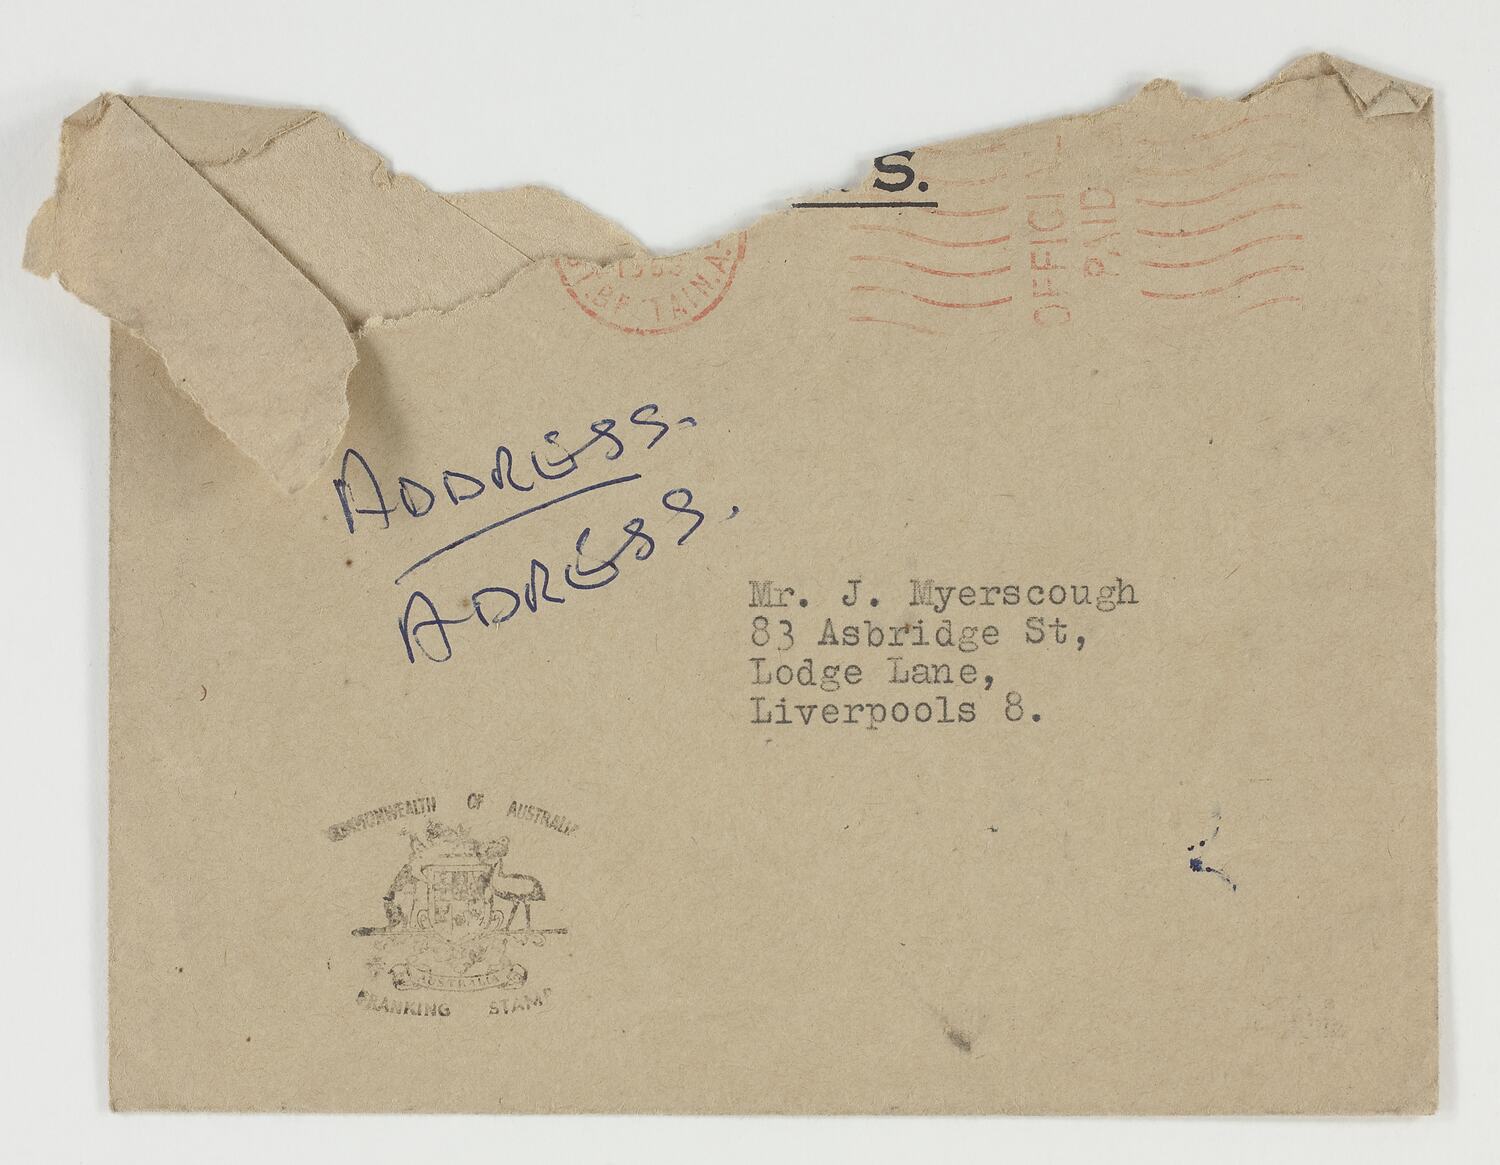 S.
OFFICIAL
PAID
ADDRESS.
ADRESS.
Mr. J. Myerscough
83 Asbridge St,
Lodge Lane,
Liverpools 8.
COMMONWEALTH OF AUSTRALIA
AUSTRALIA
FRANKING STAMP